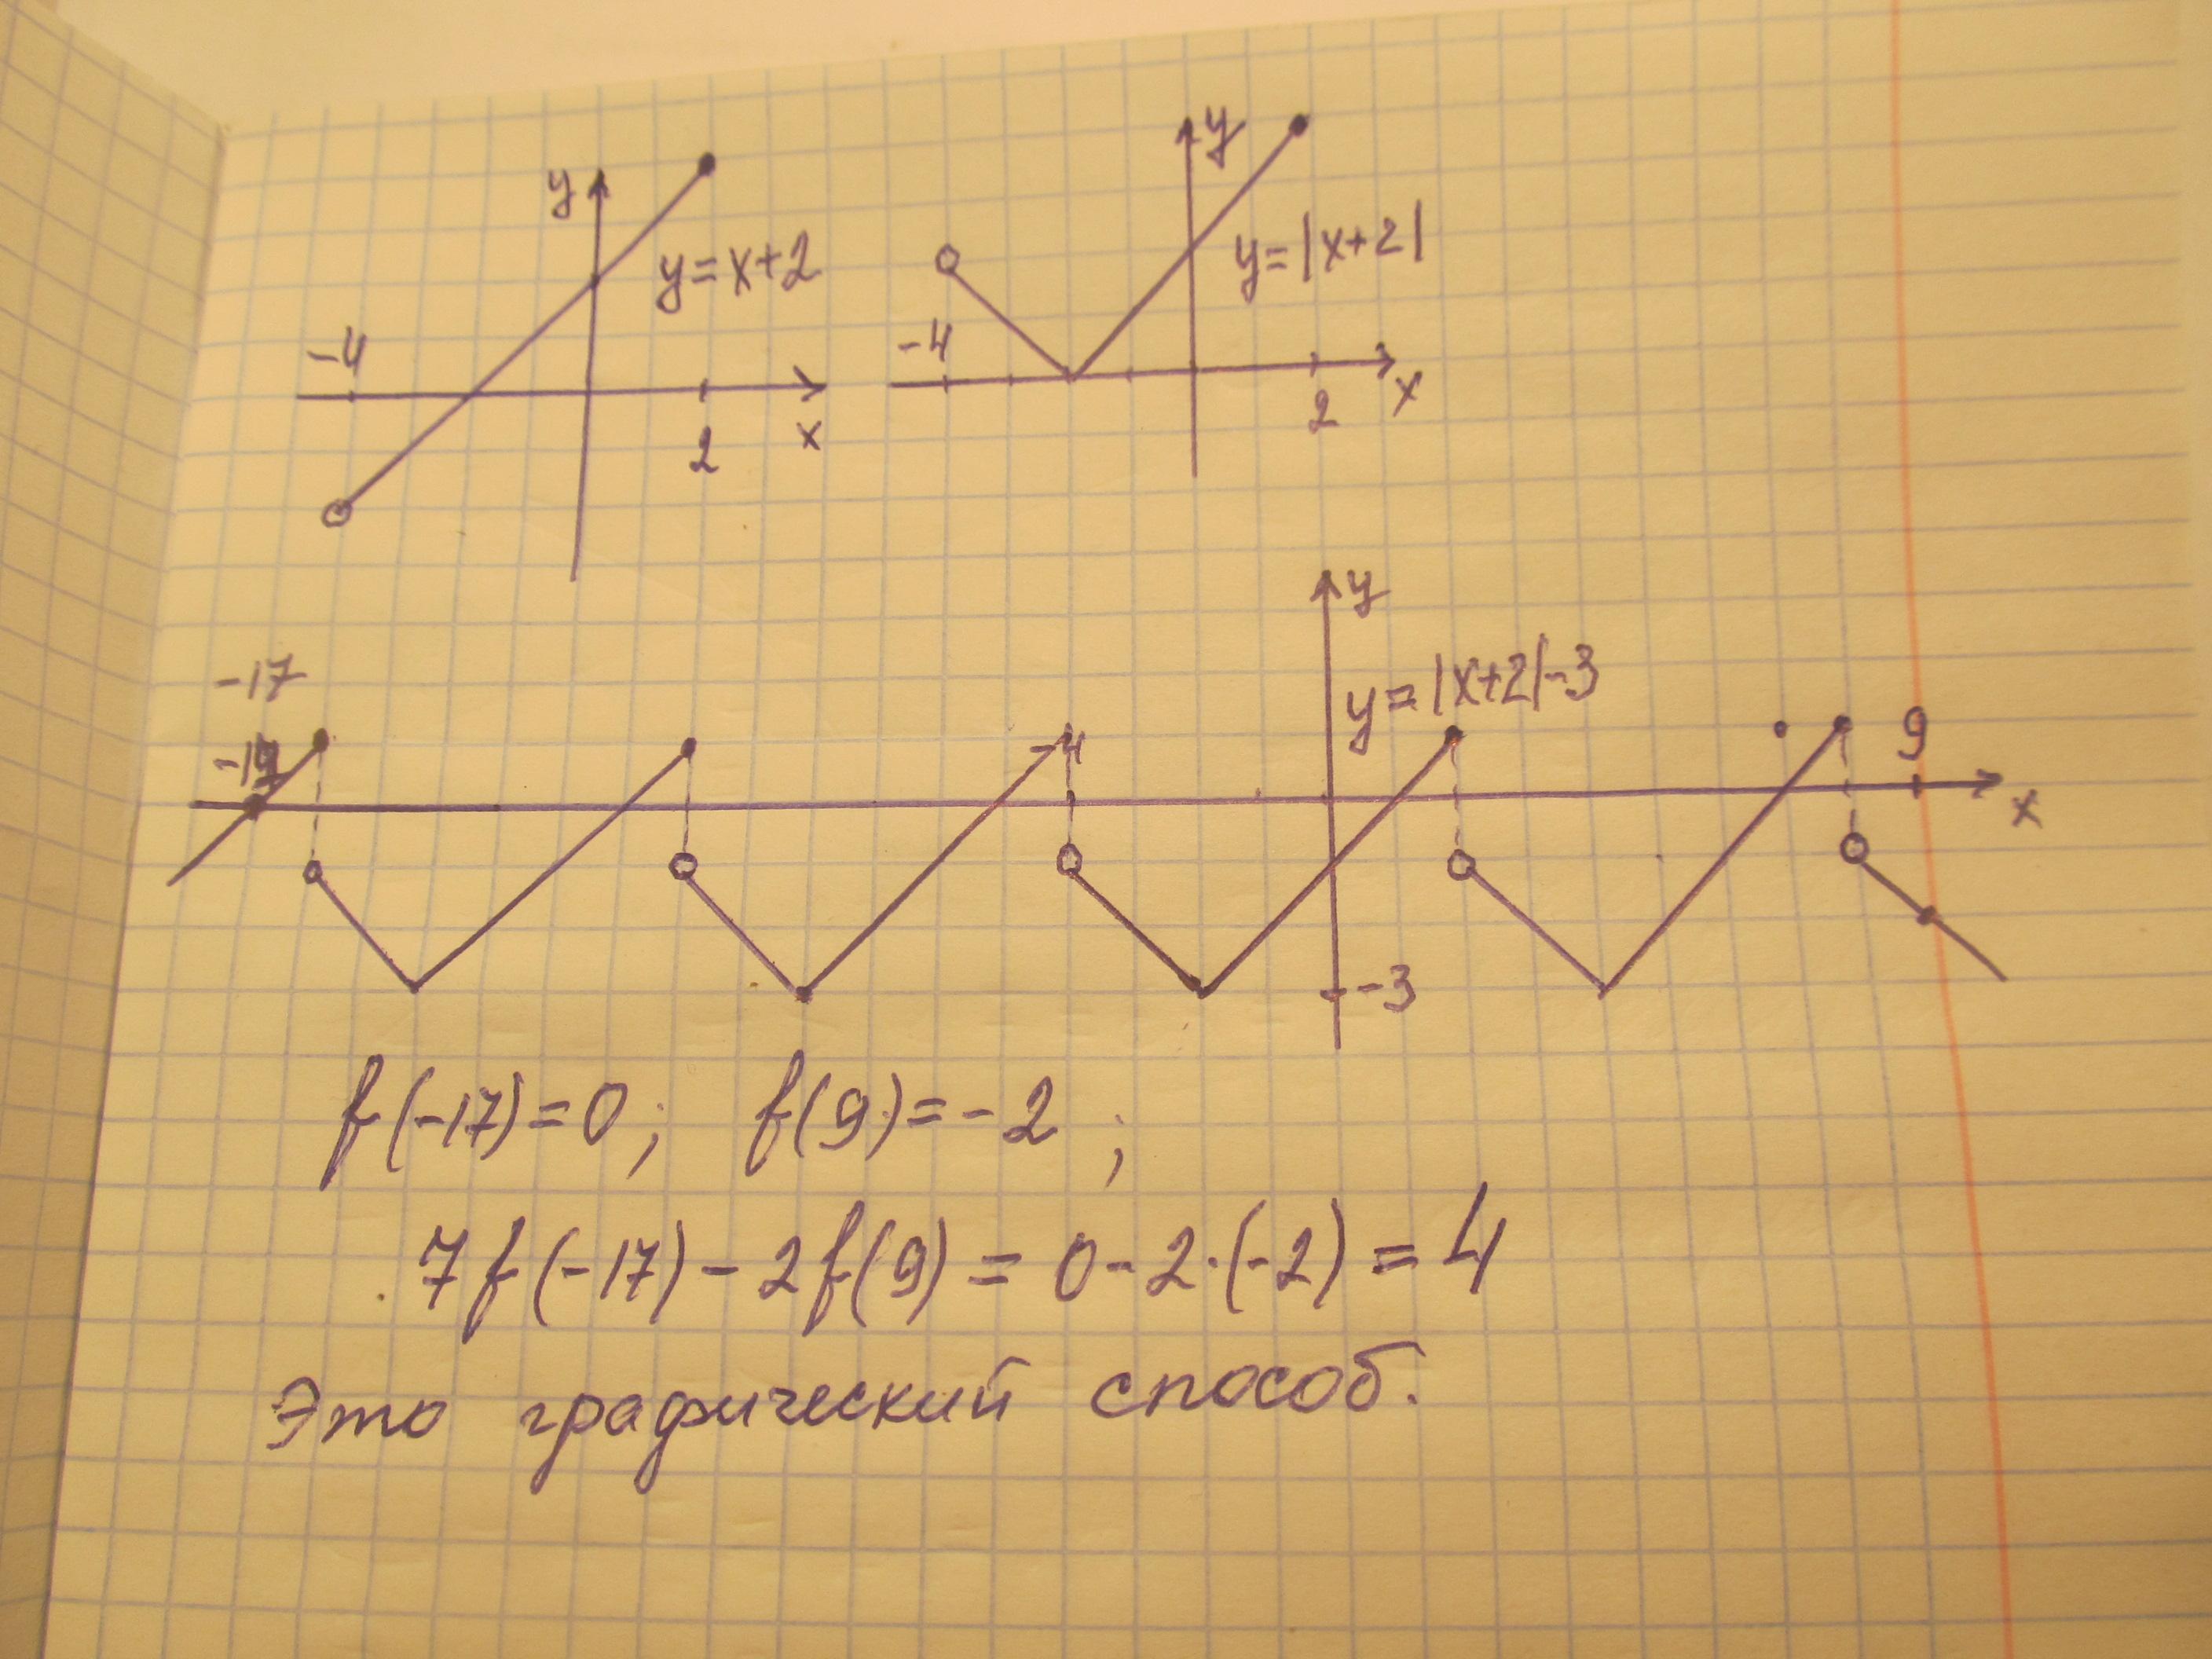 y
y
y=x+2
y=|x+2|
-4
-4
2
x
2
x
y
-17
y=|x+2|-3
-4
9
x
-3
f(-17)=0; f(9)=-2;
7f(-17)-2f(9)=0-2·(-2)=4
Это графический способ.